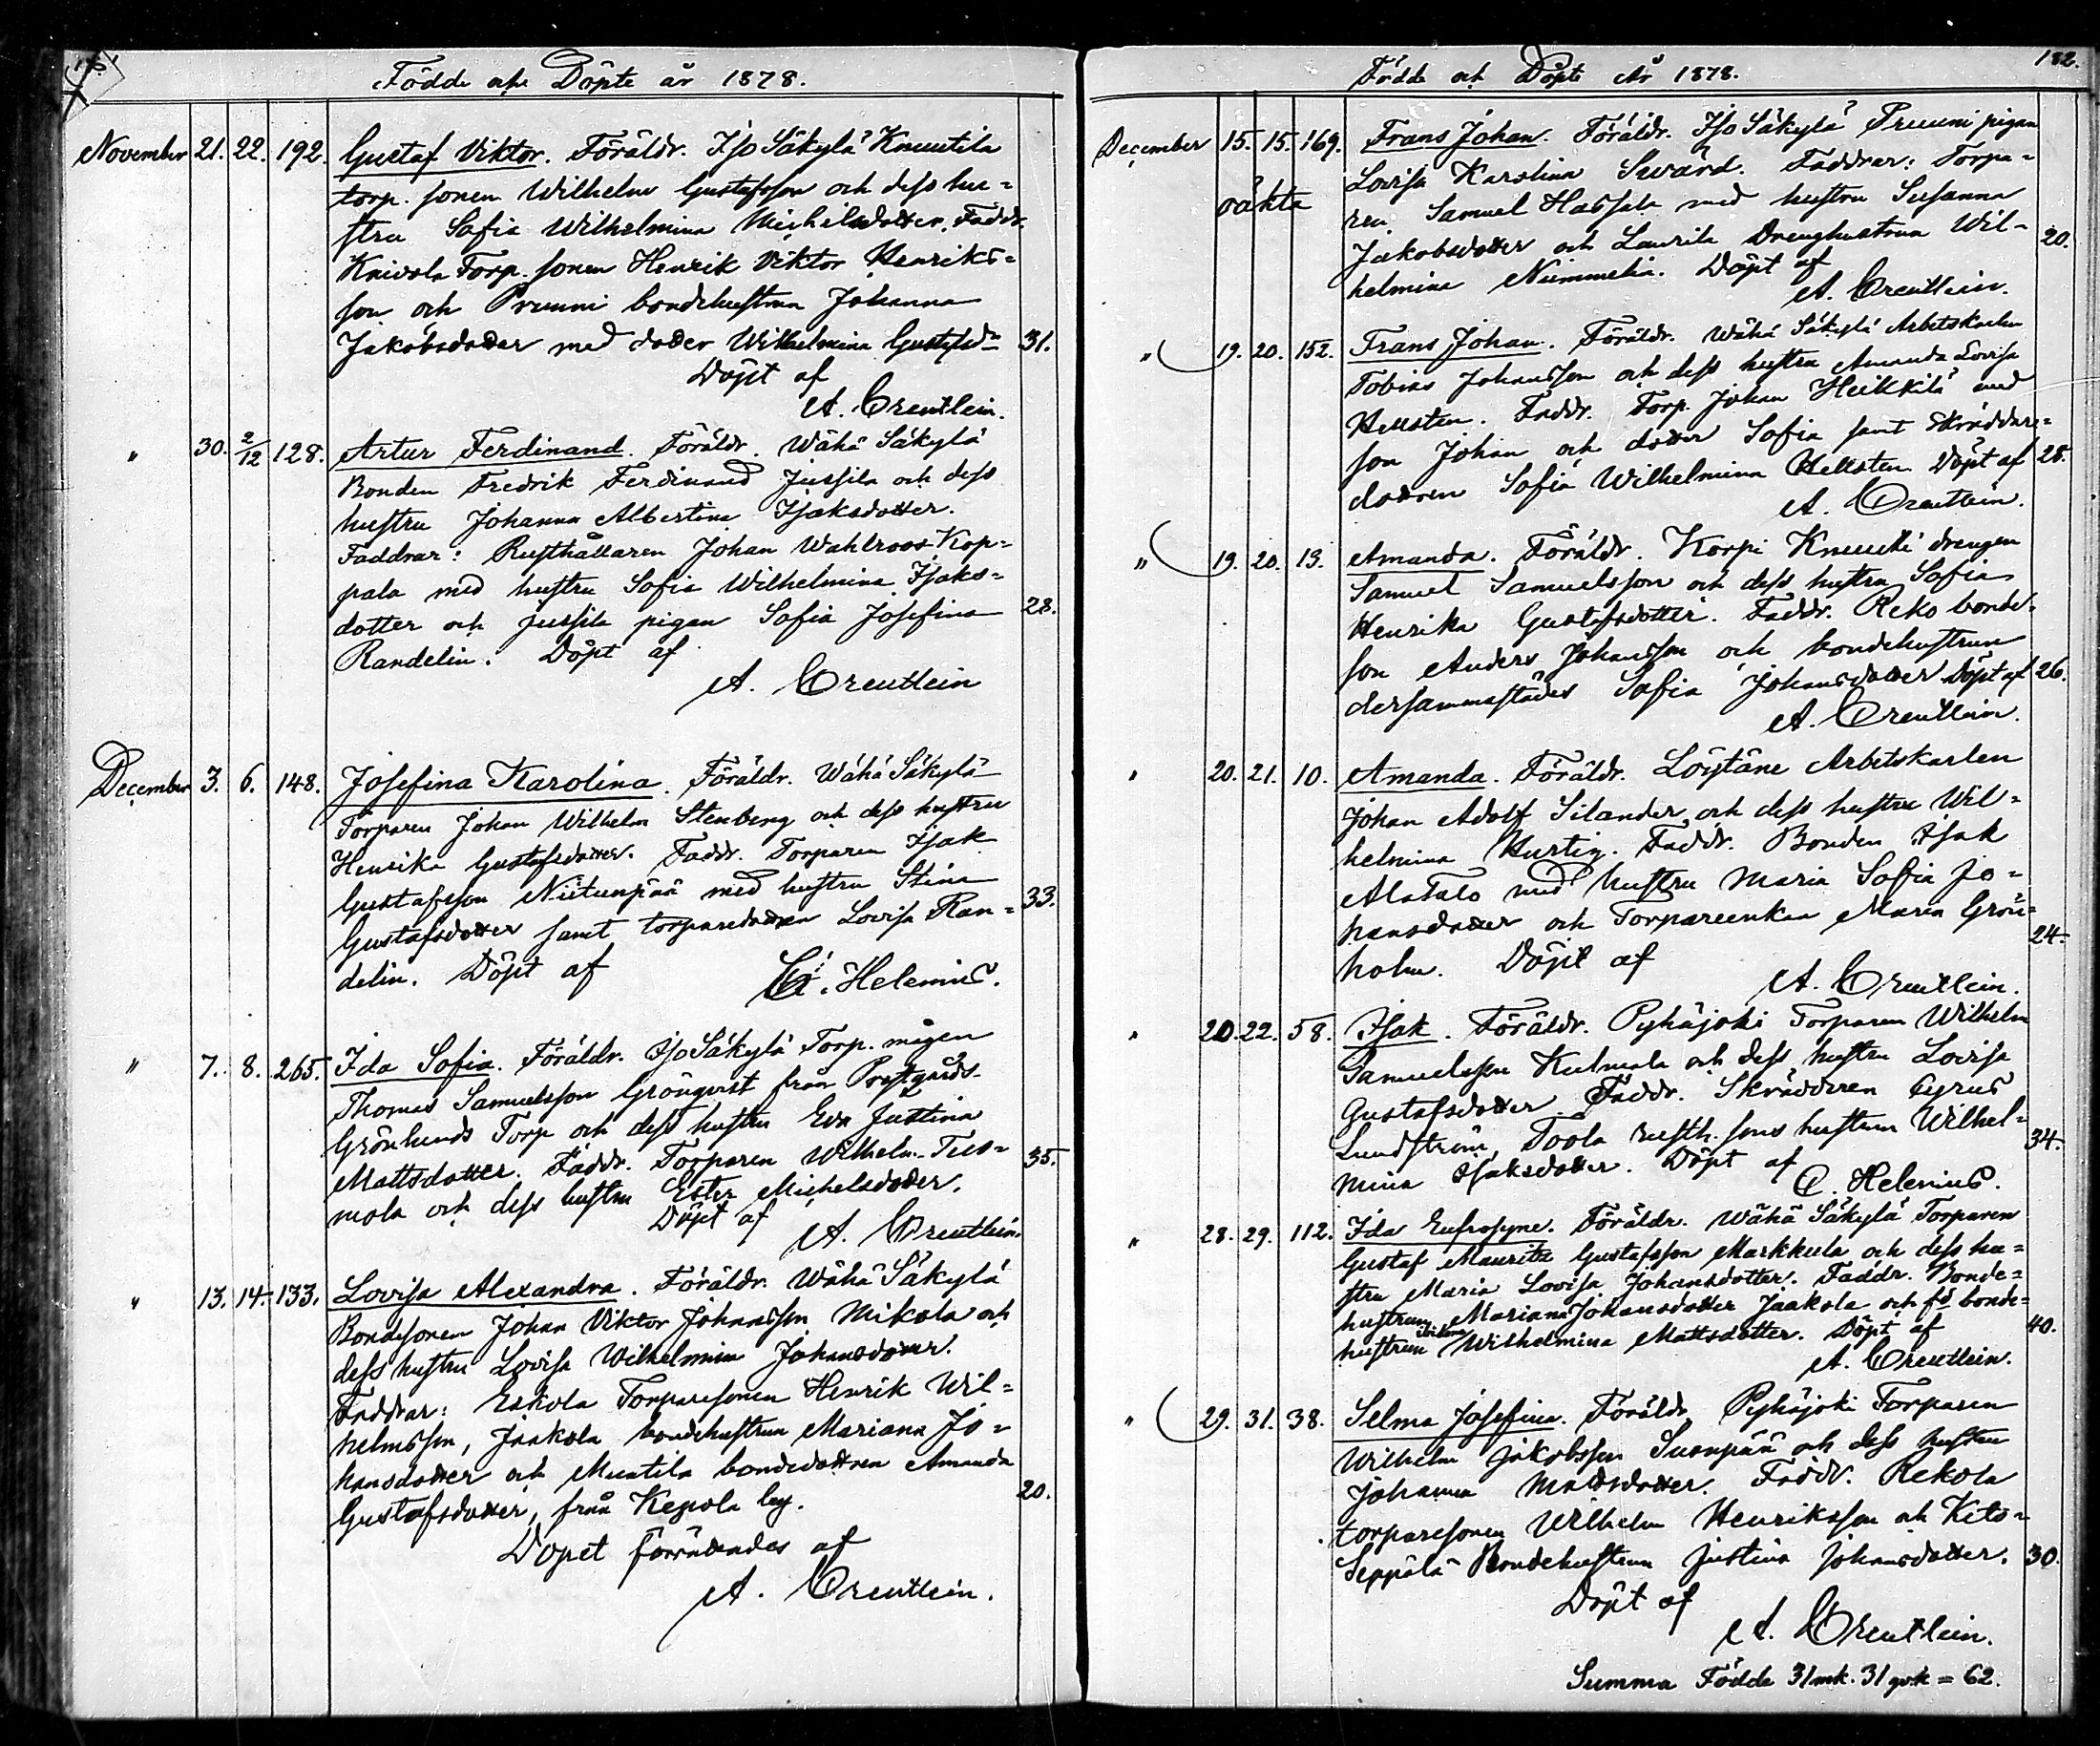 Födde och Döpte år 1878.
November 21. 22. 192. Gustaf Viktor. Föräldr. Iso Säkylä Knuutila
torp. sonen Wilhelm Gustafsson och dess hu=
stru Sofia Wilhelmina Michelsdotter. Faddr.
Knivola Torp. sonen Henrik Viktor Henriks=
son och Pruuni bondehustrun Johanna
Jakobsdotter med dotter Wilhelmina Gustafsdr 31.
Döpt af
A. Creutlein.
" 30. 2/12 128. Artur Ferdinand. Föräldr. Wähä Säkylä
Bonden Fredrik Ferdinand Jussila och dess
hustru Johanna Albertina Isaksdotter.
Faddrar: Rusthållaren Johan Wahlroos Kop=
pala med hustru Sofia Wilhelmina Isaks=
dotter och Jussila pigan Sofia Josefina 28.
Randelin. Döpt af
A. Creutlein
December 3. 6. 148. Josefina Karolina. Föräldr. Wähä Säkylä
Torparen Johan Wilhelm Stenberg och dess hustru
Henrika Gustafsdotter. Faddr. Torparen Isak
Gustafsson Niitunpää med hustru Stina
Gustafsdotter samt torparedottren Lovisa Ran= 33.
delin. Döpt af
Helenius.
" 7. 8. 265. Ida Sofia. Föräldr. Iso Säkylä Torp. mågen
Thomas Samuelsson Grönqvist från Prestgårds
Grönlunds Torp och dess hustru Eva Justina
Mattsdotter. Faddr. Torparen Wilhelm Tuo=
mola och dess hustru Ester Michelsdotter. 35.
Döpt af
A. Creutlein.
" 13. 14. 133. Lovisa Alexandra. Föräldr. Wähä Säkylä
Bondesonen Johan Viktor Johansson Mikola och
dess hustru Lovisa Wilhelmina Johansdotter.
Faddrar: Eskola Torparesonen Henrik Wil=
helmsson, Jaakola bondehustrun Mariana Jo=
hansdotter och Muntila bondedottren Amanda
Gustafsdotter, från Kepola by. 20.
Dopet förrättades af
A. Creutlein.
182.
Födde och Döpte År 1878.
December 15. 15. 169. Frans Johan. Föräldr. Iso Säkylä Pruuni pigan
oäkta Lovisa Karolina Swärd. Faddrar: Torpa=
ren Samuel Hassala med hustru Susanna
Jakobsdotter och Laurila Drenghustrun Wil= 20.
helmina Nummelin. Döpt af
A. Creutlein.
" 19. 20. 152. Frans Johan. Föräldr. Wähä Säkylä Arbetskarlen
Tobias Johansson och dess hustru Amanda Lovisa
Hellsten. Faddr. Torp. Johan Heikkilä med
son Johan och dotter Sofia samt Skräddare=
dottren Sofia Wilhelmina Hellsten. Döpt af 28.
A. Creutlein.
" 19. 20. 13. Amanda. Föräldr. Korpi Knuuti drengen
Samuel Samuelsson och dess hustru Sofia
Henrika Gustafsdotter. Faddr. Reko bonde=
son Anders Johansson och bondehustrun
dersammastädes Sofia Johansdotter Döpt af 26.
A. Creutlein.
" 20. 21. 10. Amanda. Föräldr. Löytäne Arbetskarlen
Johan Adolf Silander och dess hustru Wil=
helmina Hurtig. Faddr. Bonden Isak
Alatalo med hustru Maria Sofia Jo=
hansdotter och Torpareenkan Maria Grön=
holm. Döpt af 24.
A. Creutlein.
" 20. 22. 58. Isak. Föräldr. Pyhäjoki Torparen Wilhelm
Samuelsson Kulmala och dess hustru Lovisa
Gustafsdotter Faddr. Skräddaren Cyrus
Lundström, Toola rusth. sons hustrun Wilhel=
mina Isaksdotter. Döpt af 34.
C. Helenius.
" 28. 29. 112. Ida Eufrosyne. Föräldr. Wähä Säkylä Torparen
Gustaf Mauritz Gustafsson Markkula och dess hu=
stru Maria Lovisa Johansdotter. Faddr. Bonde=
hustrun Mariana Johansdotter Jaakola och fd bonde=
hustrun Wilhelmina Mattsdotter. Döpt af 40.
A. Creutlein.
" 29. 31. 38. Selma Josefina. Föräldr. Pyhäjoki Torparen
Wilhelm Jakobsson Suonpää och dess hustru
Johanna Mattsdotter. Faddr. Rekola
torparesonen Wilhelm Henriksson och Keto=
Seppälä Bondehustrun Justina Johansdotter. 30.
Döpt af
A. Creutlein.
Summa Födde 31 mk. 31 qvk = 62.